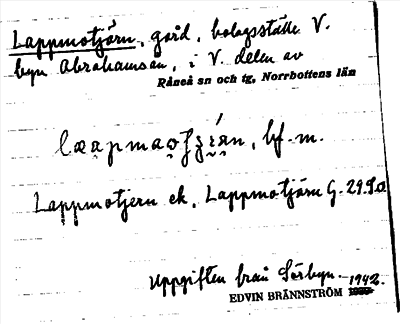 Lappmotjärn, gård, bolagsställe V.
byn Abrahamsån, i V. delen av
Råneå sn och tg, Norrbottens län
bf. m.
Lappmotjern ek, Lappmotjärn G.
Uppgiften från Sörbyn. 1942.
EDVIN BRÄNNSTRÖM